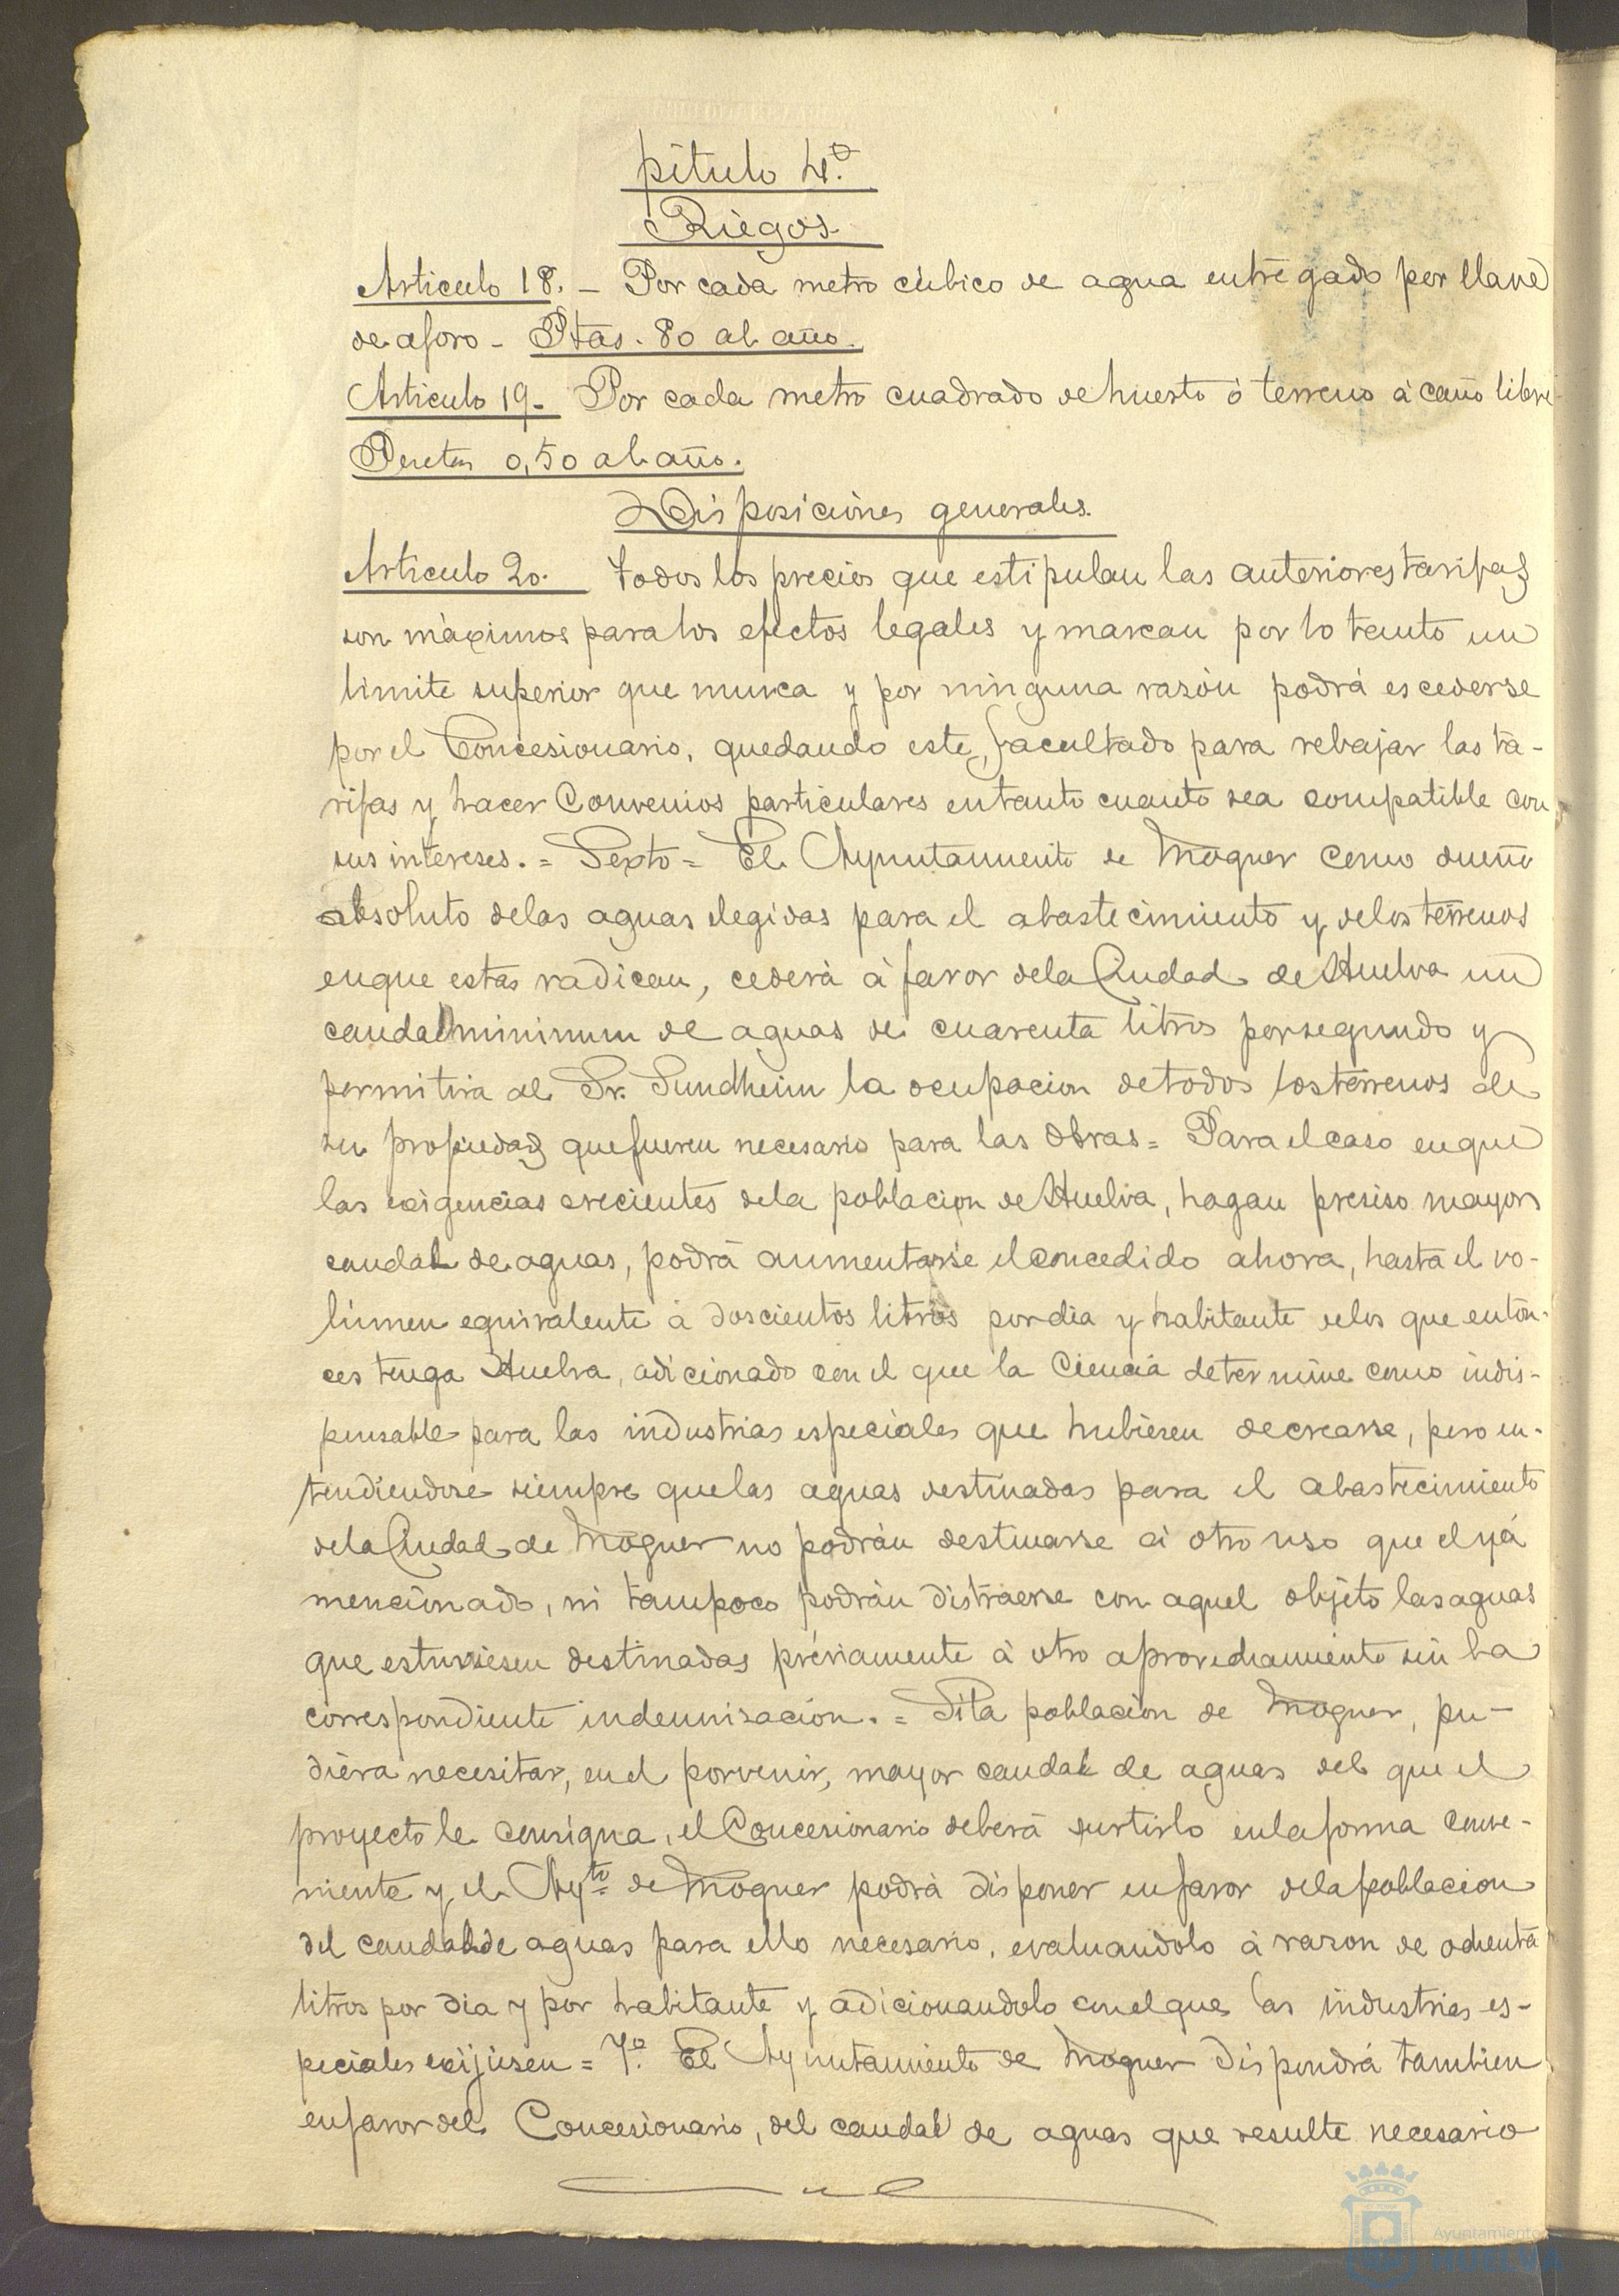 pítulo 4.º
Riegos.
Articulo 18. – Por cada metro cúbico de agua entregado por llave
de aforo – Ptas. 80 al año.
Articulo 19 – Por cada metro cuadrado de huerto ó terreno á caño libre
Pesetas 0,50 al año.
Disposiciones generales.
Articulo 20. Todos los precios que estipulan las anteriores tarifas
son máximos para los efectos legales y marcan por lo tanto un
limite superior que nunca y por ninguna razón podrá escederse
por el Concesionario, quedando este, facultado para rebajar las ta-
rifas y hacer Convenios particulares en tanto cuanto sea compatible con
sus intereses. = Sexto = El Ayuntamiento de Moguer como dueño
absoluto de las aguas elegidas para el abastecimiento y de los terrenos
en que estas radican, cederá á favor de la Ciudad de Huelva un
caudal minimum de aguas de cuarenta litros por segundo y
permitira al Sr. Sundheim la ocupacion de todos los terrenos de
su propiedad que fueren necesario para las Obras = Para el caso en que
las exigencias crecientes de la poblacion de Huelva, hagan presiso mayor
caudal de aguas, podrá aumentarse el concedido ahora, hasta el vo-
lúmen equivalente á doscientos litros por dia y habitante de los que enton-
ces tenga Huelva, adicionado con el que la Ciencia determine como indis-
pensable para las industrias especiales que hubieren de crearse, pero en-
tendiendose siempre que las aguas destinadas para el abastecimiento
de la Ciudad de Moguer no podrán destinarse á otro uso que el yá
mencionado, ni tampoco podrán distraerse con aquel objeto las aguas
que estuviesen destinadas préviamente á otro aprovechamiento sin la
correspondiente indemnisación. = Si la poblacion de Moguer, pu-
diera necesitar, en el porvenir, mayor caudal de aguas del que el
proyecto le consigna, el Concesionario deberá surtirlo en la forma conve-
niente y el Ayto de Moguer podrá disponer en favor de la poblacion
del caudal de aguas para ello necesario, evaluandolo á razon de ochenta
litros por dia y por habitante y adicionandolo con el que las industrias es-
peciales exijiesen = 7.º El Ayuntamiento de Moguer dispondrá tambien
en favor del Concesionario, del caudal de aguas que resulte necesario
Ayuntamiento
HUELVA